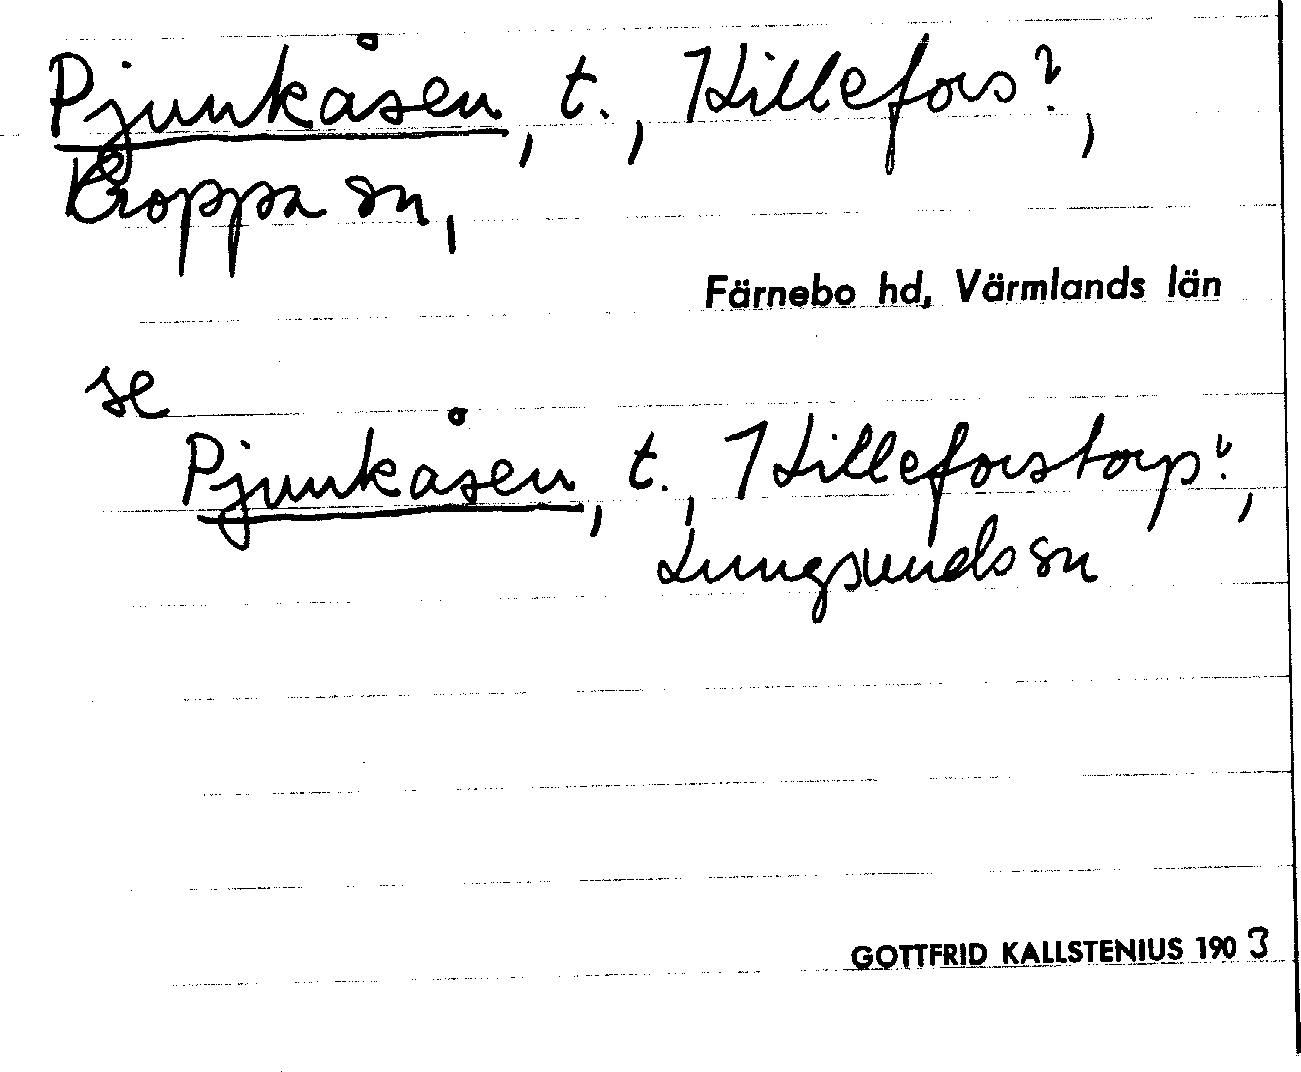 Pjunkåsen, t., Hillefors?,
Kroppa sn,
Färnebo hd, Värmlands län
se
Pjunkåsen, t., Hilleforstorp?,
Lungsunds sn
GOTTFRID KALLSTENIUS 1903